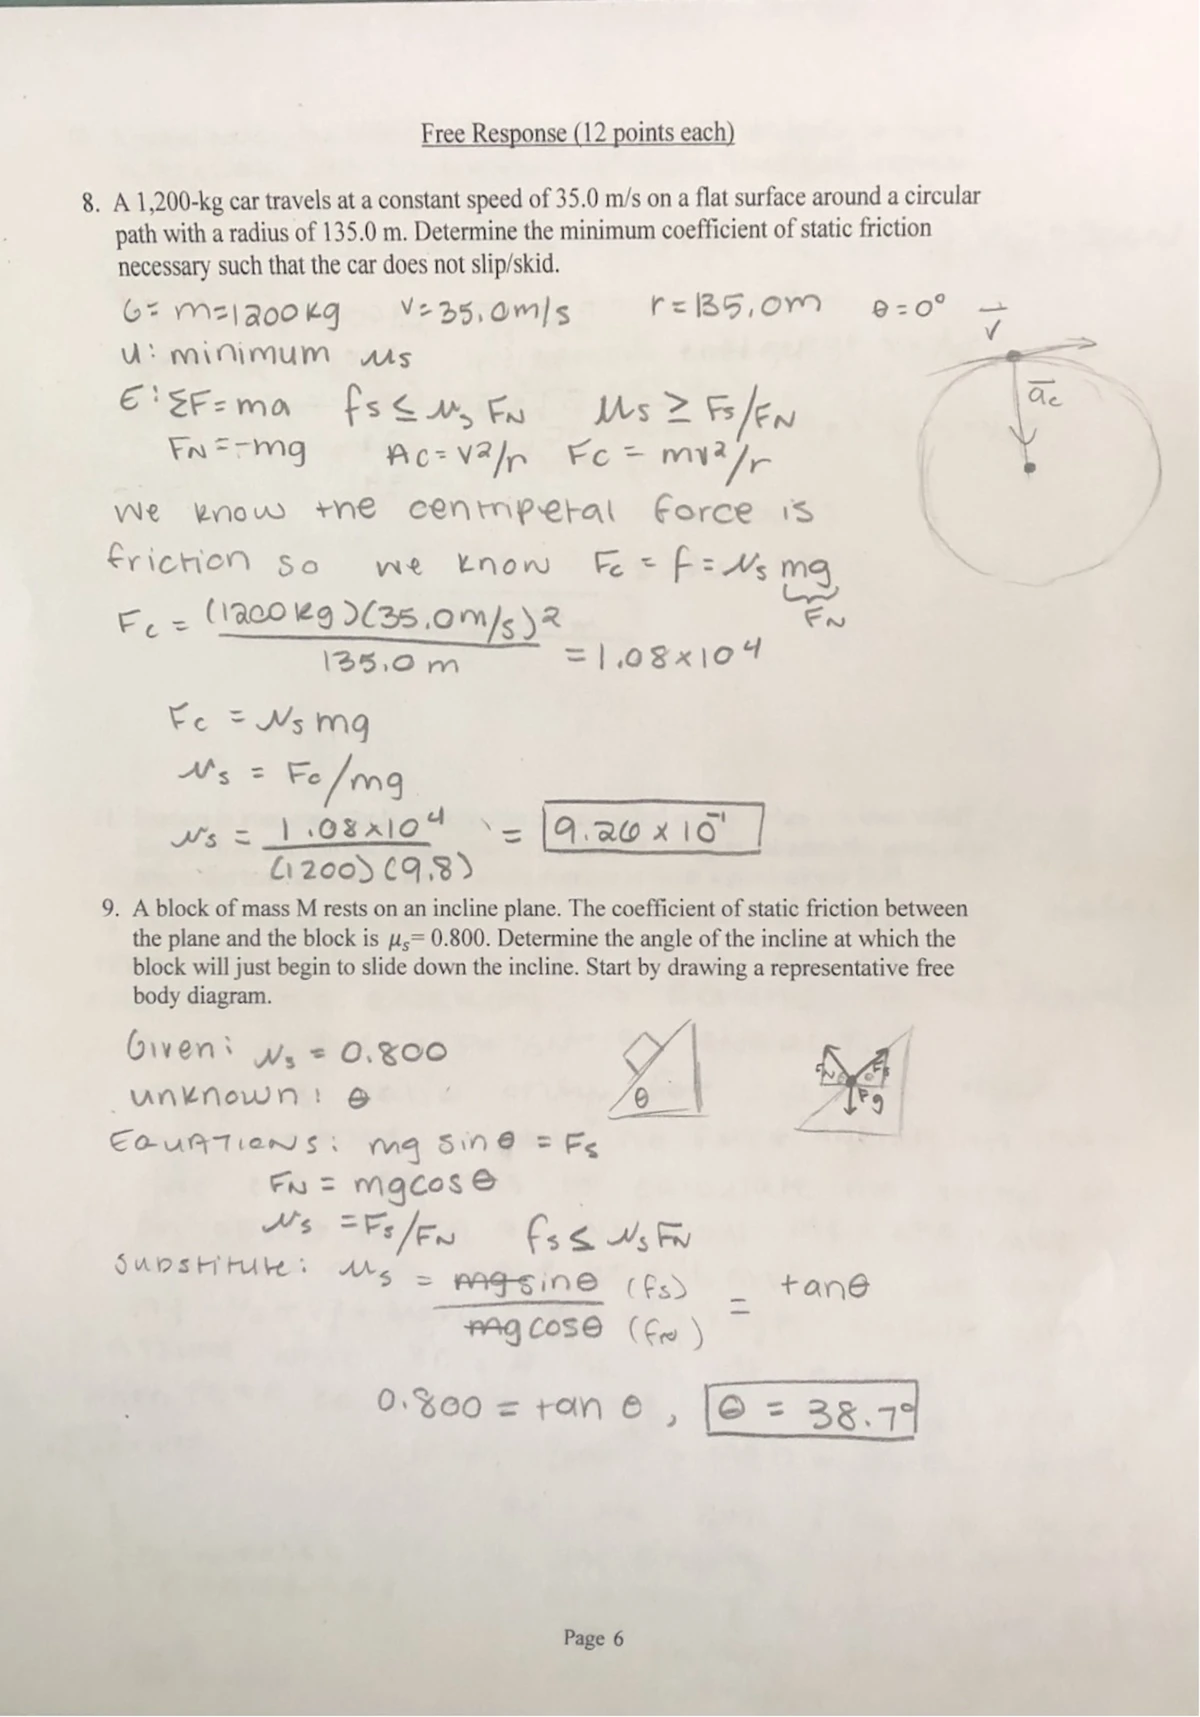 Free Response (12 points each)
8. A 1,200-kg car travels at a constant speed of 35.0 m/s on a flat surface around a circular
path with a radius of 135.0 m. Determine the minimum coefficient of static friction
necessary such that the car does not slip/skid.
G= m=1200 kg v=35.0m/s r=135.0m θ=0°
v
U: minimum μs
E: ΣF=ma fs ≤ μs FN μs ≥ Fs/FN
ac
FN=-mg Ac=v²/r Fc = mv²/r
we know the centripetal force is
friction so we know Fc = f = μs mg
FN
Fc = (1200kg)(35.0m/s)²
135.0 m
= 1.08×10⁴
Fc = μs mg
μs = Fc/mg
μs = 1.08×10⁴ = 9.26 x 10⁻¹
(1200)(9.8)
9. A block of mass M rests on an incline plane. The coefficient of static friction between
the plane and the block is μs= 0.800. Determine the angle of the incline at which the
block will just begin to slide down the incline. Start by drawing a representative free
body diagram.
Given: μs = 0.800
θ
FN Fs
Fg
unknown: θ
EQUATIONS: mg sinθ = Fs
FN = mgcosθ
μs = Fs/FN fs ≤ μs FN
substitute: μs = mgsinθ (fs) = tanθ
mgcosθ (FN)
0.800 = tan θ, θ = 38.7°
Page 6